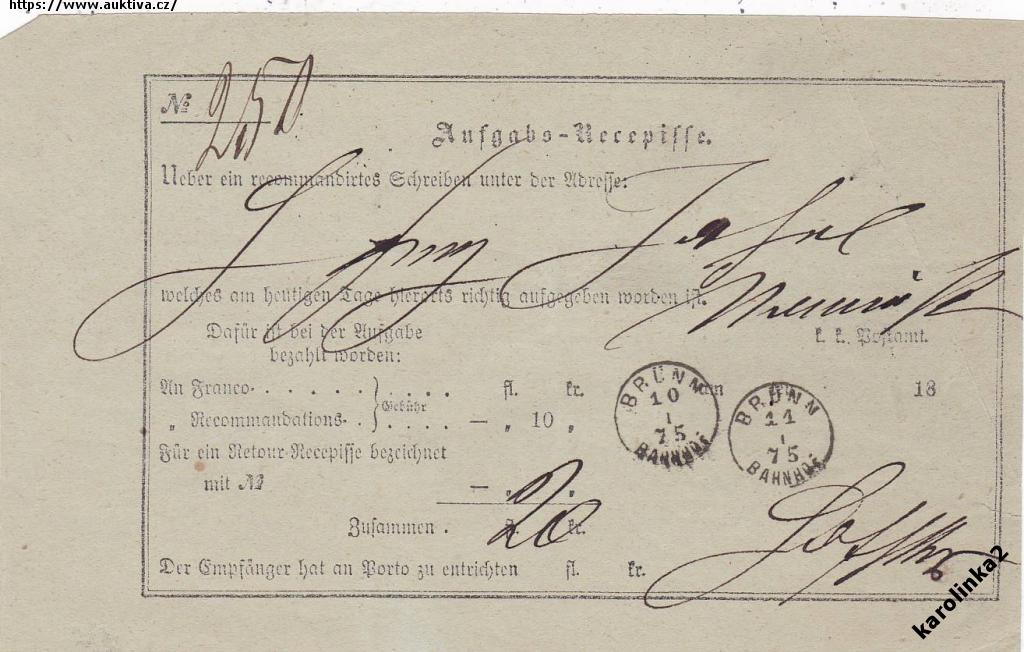 https://www.auktiva.cz/
№ 250
Aufgabs-Recepisse.
Ueber ein recommandirtes Schreiben unter der Adresse:
welches am heutigen Tage hierorts richtig aufgegeben worden ist.
Dafür ist bei der Aufgabe
bezahlt worden:
k. k. Postamt.
An Franco . . . . . } Gebühr . . . . fl. kr.
am 18
„ Recommandations . . } . . . . — „ 10 „
Für ein Retour-Recepisse bezeichnet
mit № — „ „
Zusammen . fl. 20 kr.
Der Empfänger hat an Porto zu entrichten fl. kr.
BRÜNN
10
1
75
BAHNHOF
BRÜNN
11
1
75
BAHNHOF
karolinka2